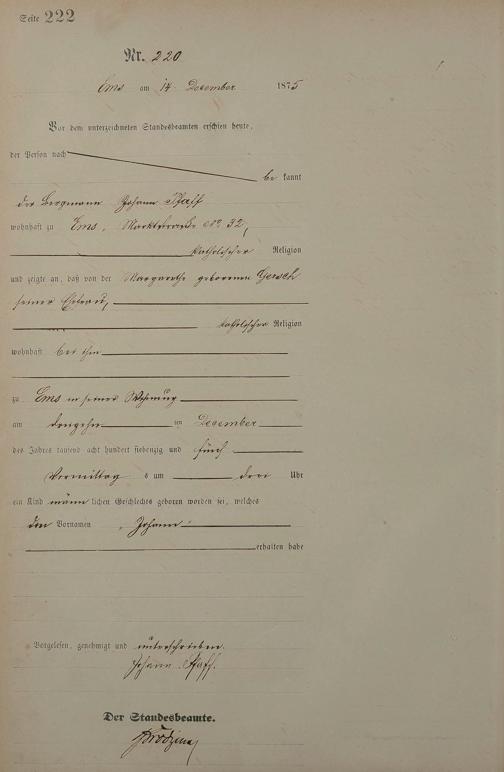 Seite 222
Nr. 220
Ems am 14 December 1875
Vor dem unterzeichneten Standesbeamten erschien heute,
der Person nach
be kannt
der Bergmann Johann Pfaff
wohnhaft zu Ems, Marktstraße No 32,
katholischer Religion
und zeigte an, daß von der Margarethe geborenen Gersch
seiner Ehefrau,
katholischer Religion
wohnhaft bei ihm
zu Ems in seiner Wohnung
am dreizehn ten December
des Jahres tausend acht hundert siebenzig und fünf
Vormittag s um drei Uhr
ein Kind männ lichen Geschlechts geboren worden sei, welches
den Vornamen Johann
erhalten habe
Vorgelesen, genehmigt und unterschrieben.
Johann Pfaff.
Der Standesbeamte.